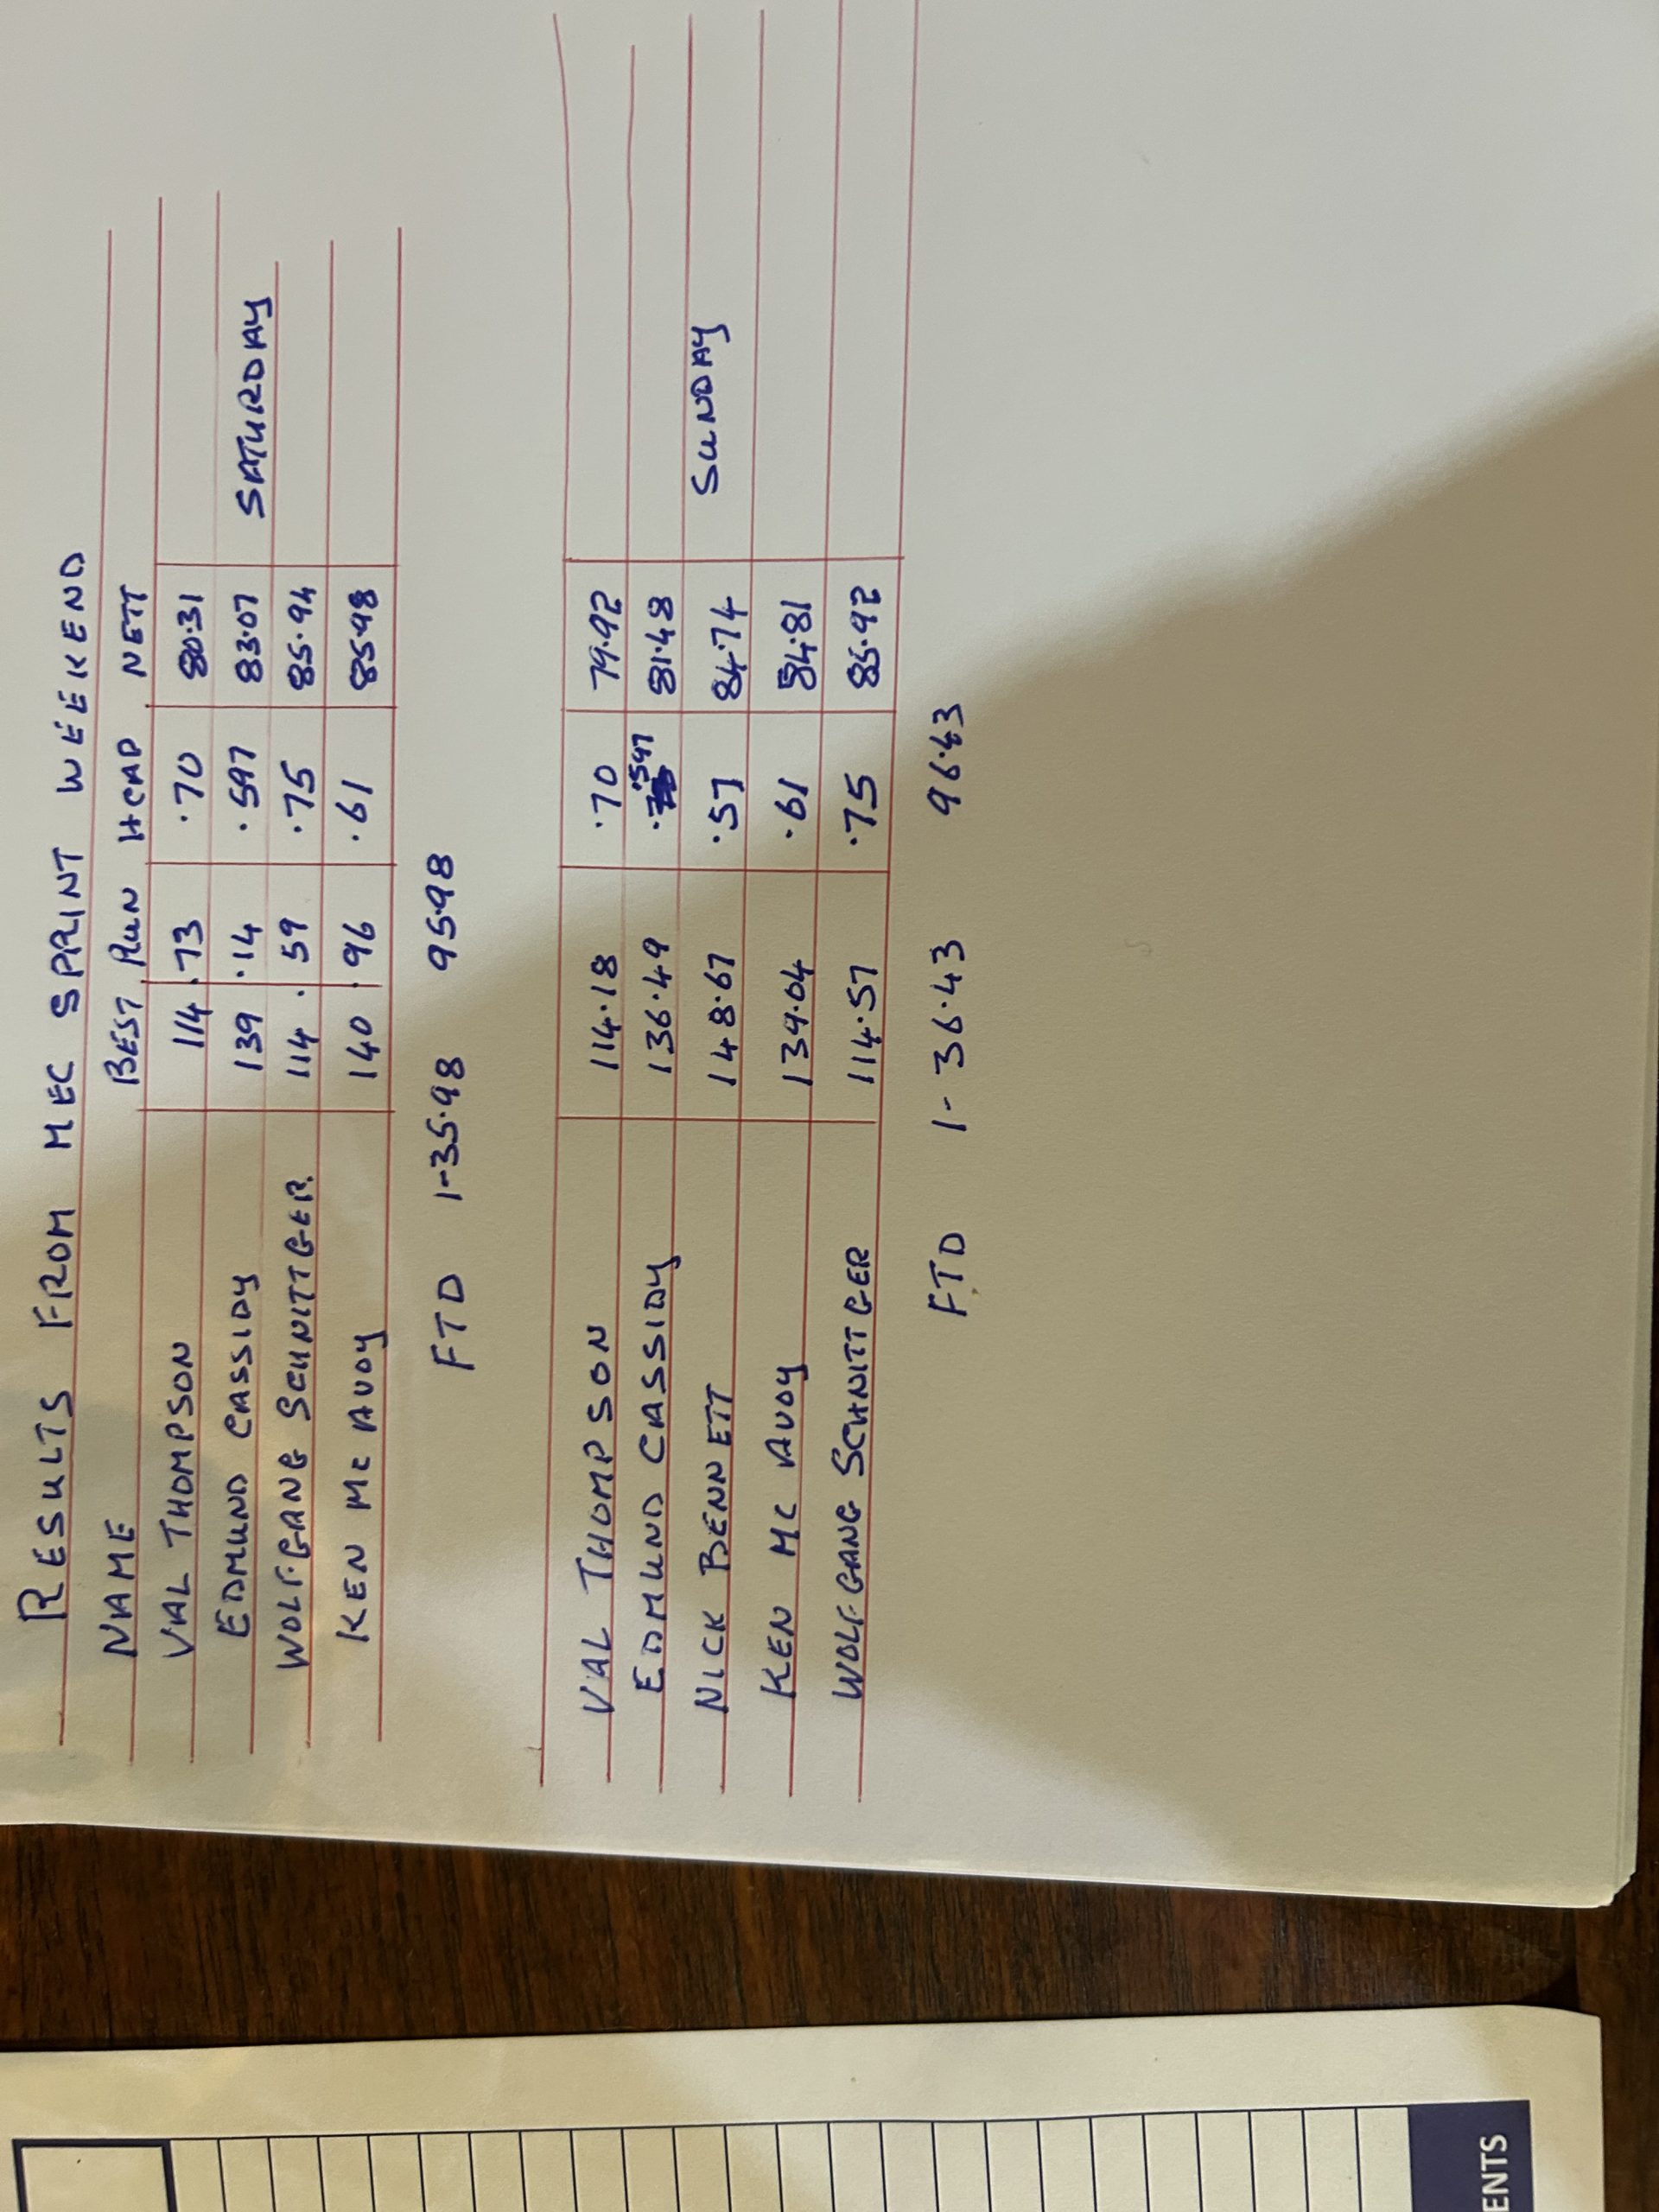 RESULTS FROM MEC SPRINT WEEKEND
NAME BEST RUN HCAP NETT
VAL THOMPSON 114.73 .70 80.31
EDMUND CASSIDY 139.14 .597 83.07
SATURDAY
WOLFGANG SCHNITTGER 114.59 .75 85.94
KEN MC AVOY 140.96 .61 85.98
FTD 1-35.98 95.98
VAL THOMPSON 114.18 .70 79.92
EDMUND CASSIDY 136.49 .597 81.48
NICK BENNETT 148.67 .57 84.74
SUNDAY
KEN MC AVOY 139.04 .61 84.81
WOLFGANG SCHNITTGER 114.57 .75 85.92
FTD 1-36.43 96.43
ENTS